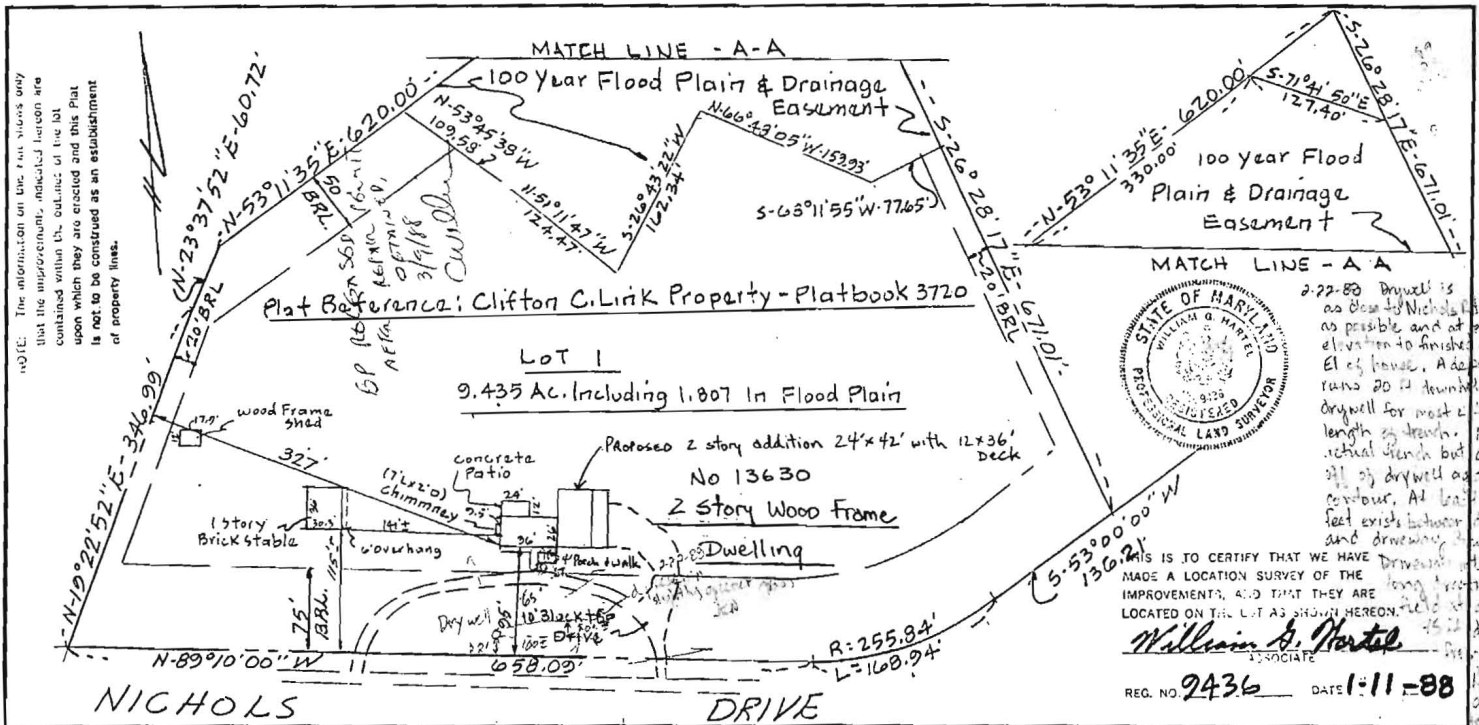 NOTE: The information on this Plat shows only
that the improvements indicated hereon are
contained within the outlines of the lot
upon which they are erected and this Plat
is not to be construed as an establishment
of property lines.
MATCH LINE - A-A
100 Year Flood Plain & Drainage
Easement
N-23°37'52"E-60.72'
N-53°11'35"E-620.00'
50'
BRL.
20' BRL
N-53°45'38"W
109.58'
N-51°11'47"W
124.47'
S-26°43'22"W
162.34'
N-66°43'05"W-153.93'
S-63°11'55"W-77.65'
S-26°28'17"E-671.01'
20' BRL
BP
REPAIR
OBTAINED,
3/9/88
CWilliams
Plat Reference: Clifton C. Link Property - Platbook 3720
LOT 1
9.435 Ac. Including 1.807 In Flood Plain
N-19°22'52"E-346.99'
17.9'
wood Frame
shed
327'
(7.2x2.0)
Chimmney
concrete
Patio
24'
12'
Proposed 2 story addition 24'x42' with 12x36'
Deck
No 13630
2 Story Wood Frame
Dwelling
1 Story
Brick stable
36'
30.3'
141'±
6' overhang
115'±
36'
26'
Porch & walk
75'
BRL.
Drywell
65'
10' Blacktop
Drive
N-89°10'00"W
658.09'
R=255.84'
L=168.94'
S-53°00'00"W
136.21'
NICHOLS DRIVE
N-53°11'35"E-620.00'
330.00'
S-71°41'50"E
127.40'
S-26°28'17"E-671.01'
100 year Flood
Plain & Drainage
Easement
MATCH LINE - A A
STATE OF MARYLAND
WILLIAM G. HARTEL
REGISTERED
PROFESSIONAL LAND SURVEYOR
2-22-88 Drywell is
as close to Nichols
as possible and at
elevation to finished
El of house. A
runs 20 ft
drywell for most
length of trench.
actual trench but
off of drywell
contour. At
feet exists between
and driveway
THIS IS TO CERTIFY THAT WE HAVE
MADE A LOCATION SURVEY OF THE
IMPROVEMENTS, AND THAT THEY ARE
LOCATED ON THE LOT AS SHOWN HEREON.
William G. Hartel
ASSOCIATE
REG. NO. 9436 DATE 1-11-88